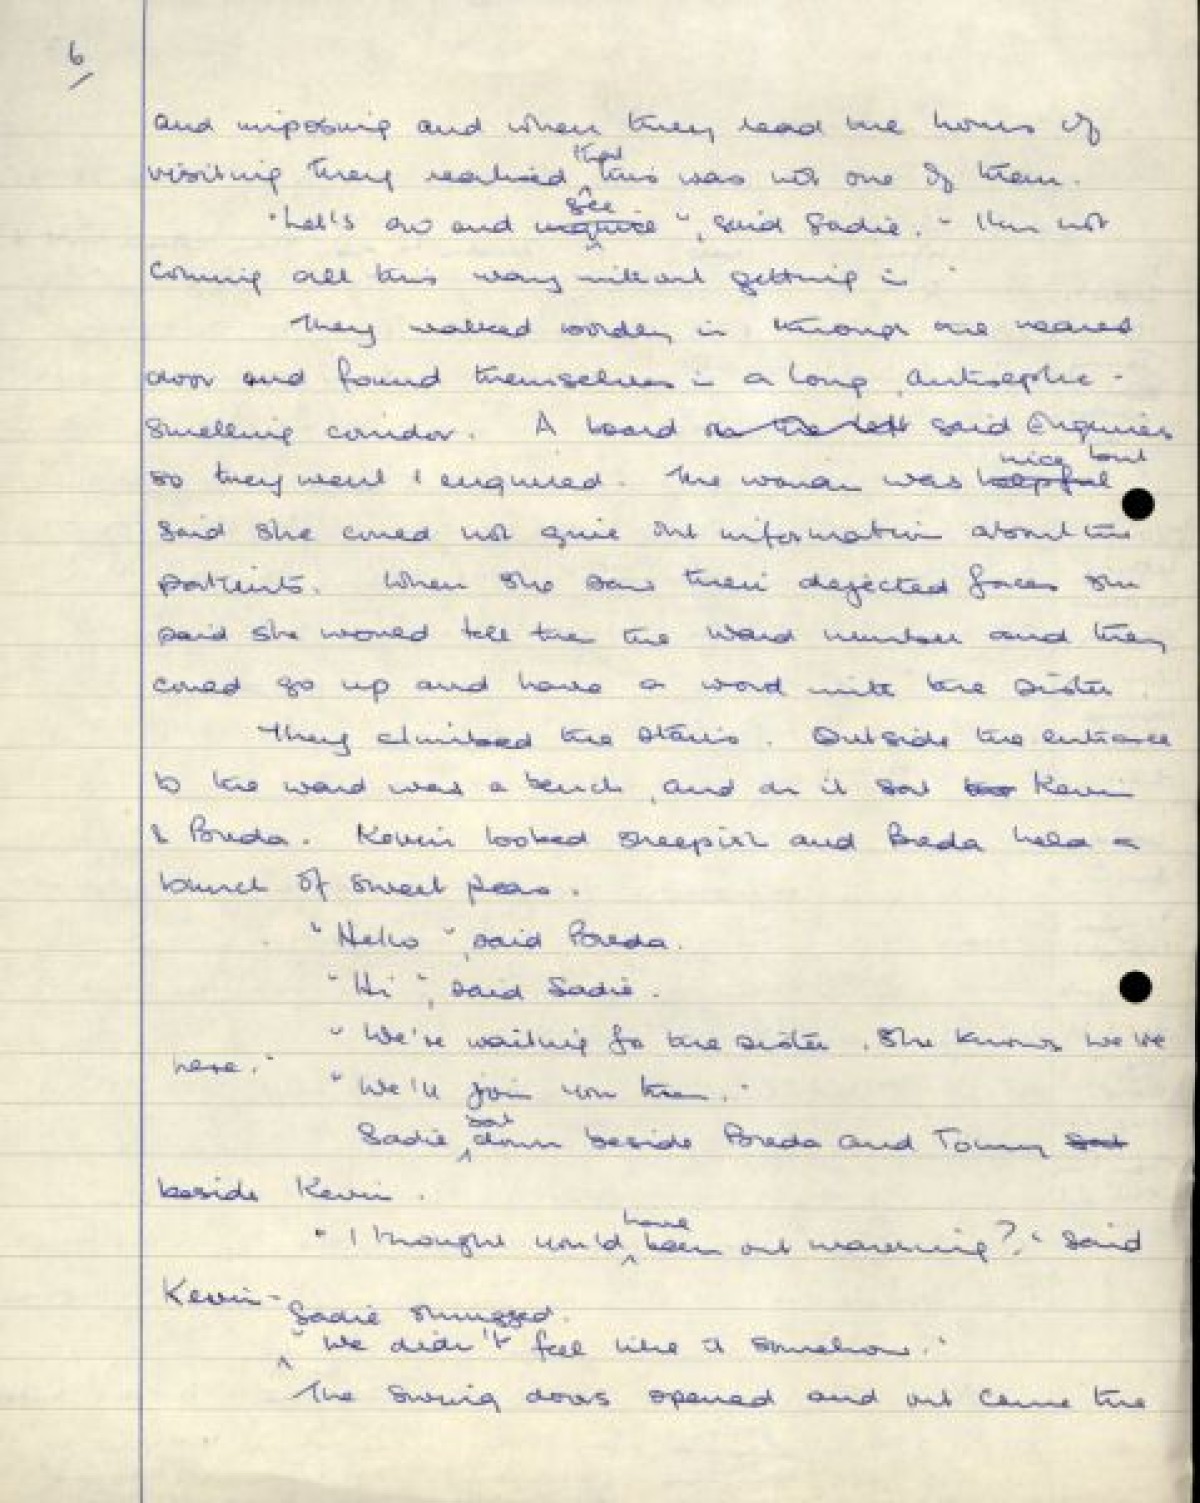 6
and imposing and when they read the hours of
visiting they realised that this was not one of them.
"Let's go and see", said Sadie. "I'm not
coming all this way without getting in."
They walked boldly in through the nearest
door and found themselves in a long, antiseptic-
smelling corridor. A board on the left said Enquiries
so they went & enquired. The woman was nice but
said she could not give out information about the
patients. When she saw their dejected faces she
said she would tell them the ward number and they
could go up and have a word with the sister.
They climbed the stairs. Outside the entrance
to the ward was a bench, and on it sat Kevin
& Breda. Kevin looked sheepish and Breda held a
bunch of sweet peas.
"Hello", said Breda.
"Hi", said Sadie.
"We're waiting for the sister. She knows we're
here."
"We'll join you then."
Sadie sat down beside Breda and Tommy
beside Kevin.
"I thought you'd have been out marching?" said
Kevin.
Sadie shrugged.
"We didn't feel like it somehow."
The swing doors opened and out came the